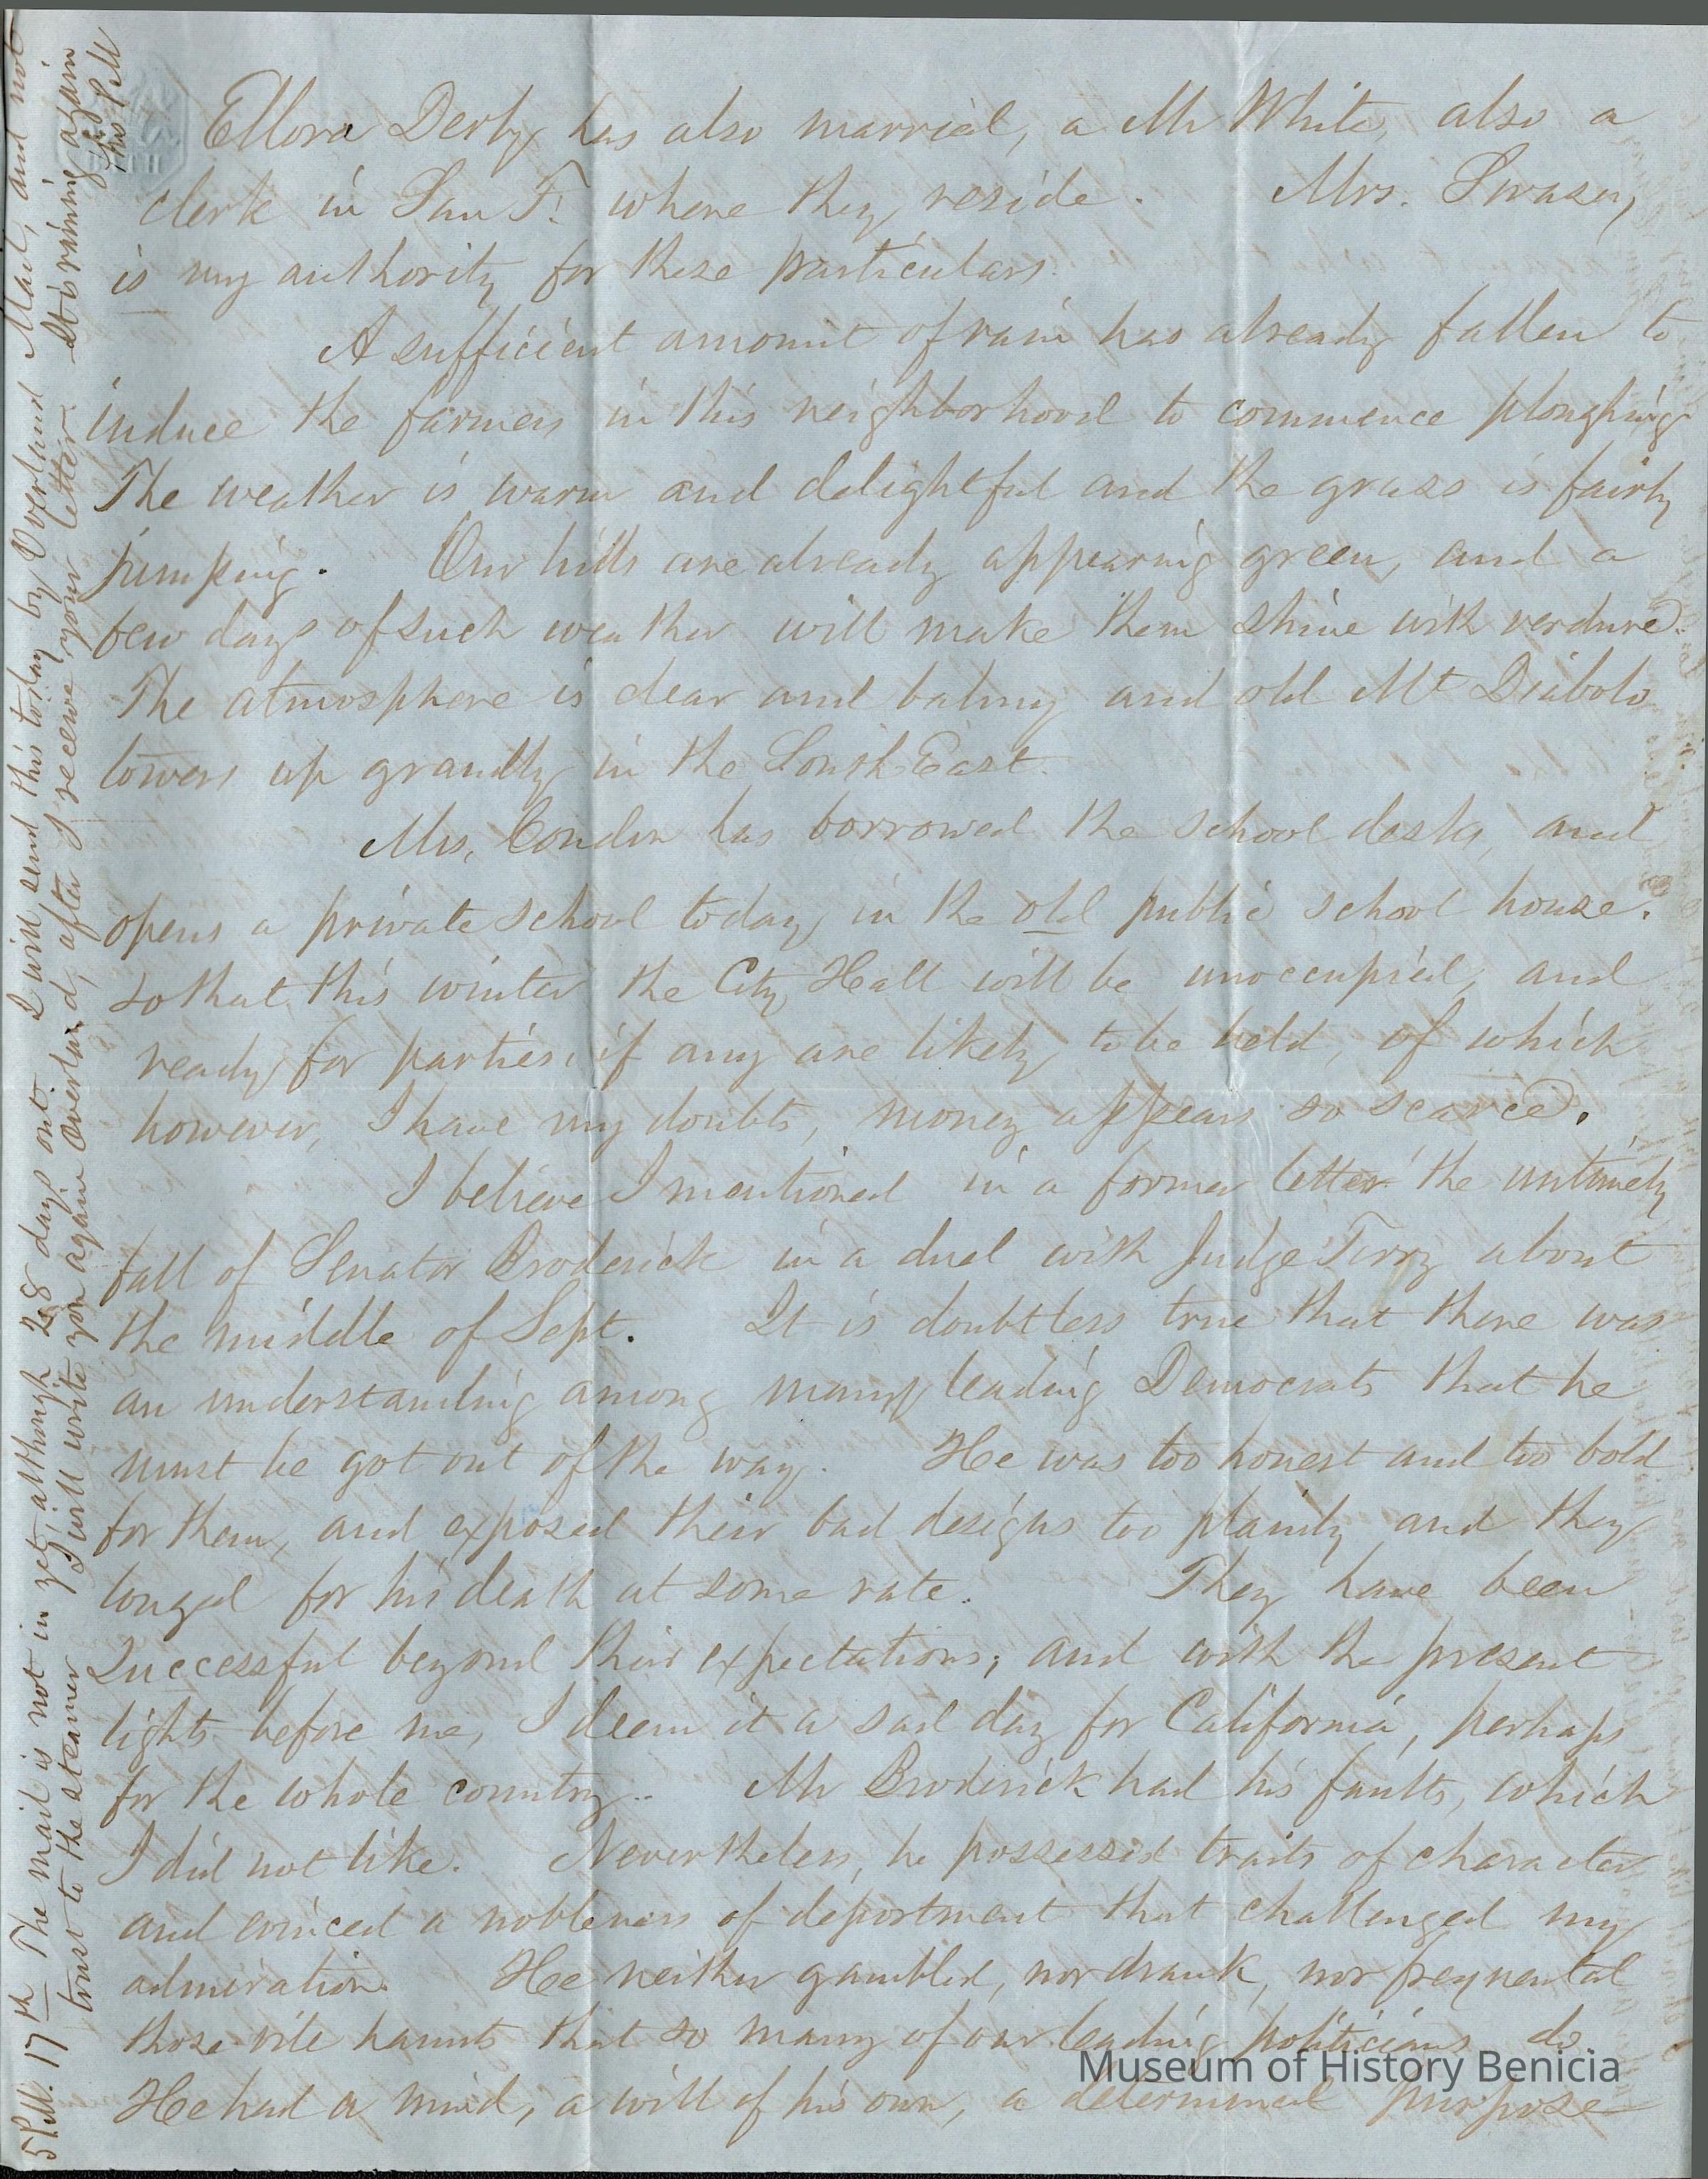 Ellora Derby has also married, a Mr White, also a
clerk in San F. where they reside. Mrs. Swasey,
is my authority for these particulars.
A sufficient amount of rain has already fallen to
induce the farmers in this neighborhood to commence ploughing
The weather is warm and delightful and the grass is fairly
jumping. Our hills are already appearing green, and a
few days of such weather will make them shine with verdure.
The atmosphere is clear and balmy and old Mt Diabolo
towers up grandly in the South East.
Mrs. Condin has borrowed the school desks, and
opens a private school today, in the old public school house.
so that this winter the City Hall will be unoccupied, and
ready for parties, if any are likely to be held, of which
however, I have my doubts, money appears so scarce.
I believe I mentioned in a former letter the untimely
fall of Senator Broderick in a duel with Judge Terry about
the middle of Sept. It is doubtless true that there was
an understanding among many leading Democrats that he
must be got out of the way. He was too honest and too bold
for them, and exposed their bad designs too plainly and they
longed for his death at some rate. They have been
successful beyond their expectations; and with the present
lights before me, I deem it a sad day for California, perhaps
for the whole country. Mr Broderick had his faults, which
I did not like. Nevertheless, he possessed traits of character
and evinced a nobleness of deportment that challenged my
admiration. He neither gambled, nor drank, nor frequented
those vile haunts that so many of our leading politicians do.
He had a mind, a will of his own, a determined purpose
5 P.M. 17th The mail is not in yet, although 28 days out. I will send this today by Overland Mail, and not
trust to the steamer I will write you again Overland, after I receive your letter. It is raining again
this P.M
Museum of History Benicia